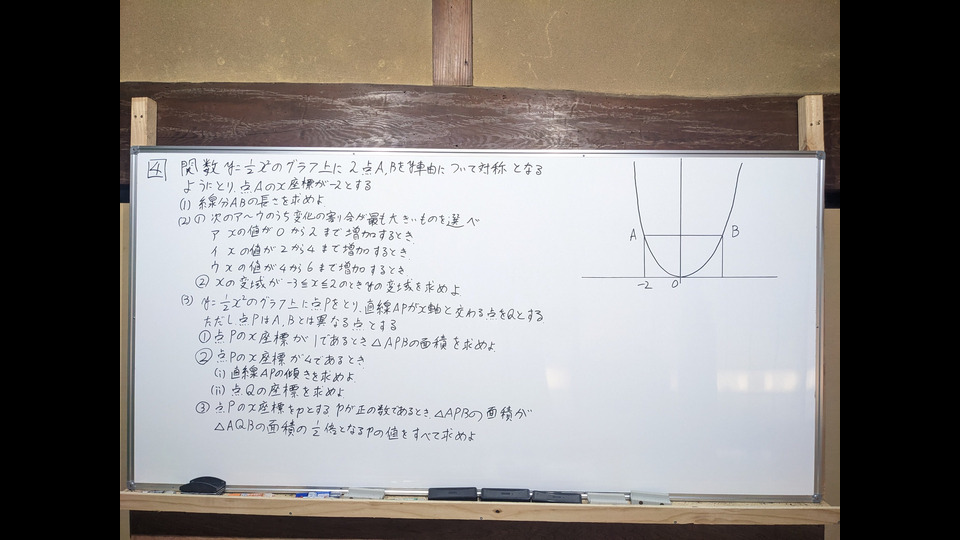 4 関数 y=1/2x²のグラフ上に2点A,Bをy軸について対称となる
ようにとり,点Aのx座標が-2とする
(1) 線分ABの長さを求めよ
(2) ① 次のア~ウのうち変化の割合が最も大きいものを選べ
ア xの値が0から2まで増加するとき
イ xの値が2から4まで増加するとき
ウ xの値が4から6まで増加するとき
② xの変域が-3≦x≦2のときyの変域を求めよ
(3) y=1/2x²のグラフ上に点Pをとり,直線APがx軸と交わる点をQとする
ただし点PはA,Bとは異なる点とする
① 点Pのx座標が1であるとき△APBの面積を求めよ
② 点Pのx座標が4であるとき
(i) 直線APの傾きを求めよ
(ii) 点Qの座標を求めよ
③ 点Pのx座標をpとする pが正の数であるとき△APBの面積が
△AQBの面積の1/2倍となるpの値をすべて求めよ
A
B
-2
0